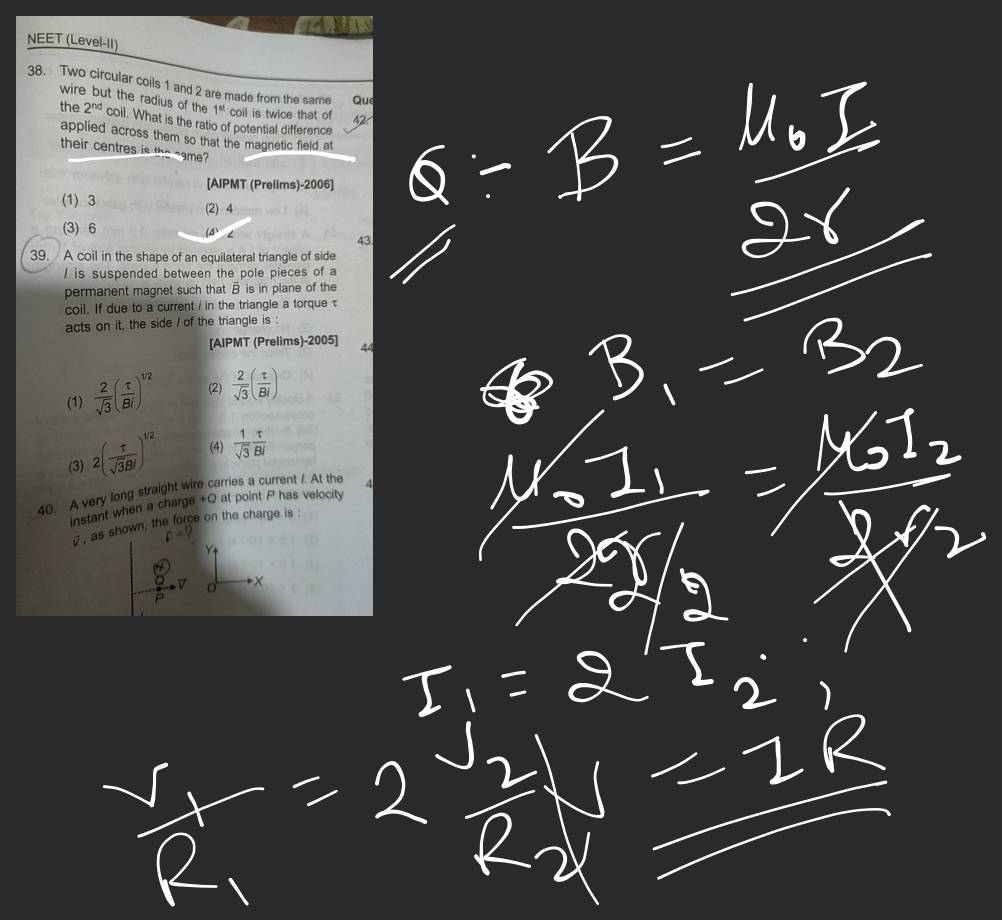 NEET (Level-II)
38. Two circular coils 1 and 2 are made from the same
wire but the radius of the 1st coil is twice that of
the 2nd coil. What is the ratio of potential difference
applied across them so that the magnetic field at
their centres is the same?
[AIPMT (Prelims)-2006]
(1) 3
(2) 4
(3) 6
(4) 2
39. A coil in the shape of an equilateral triangle of side
l is suspended between the pole pieces of a
permanent magnet such that B⃗ is in plane of the
coil. If due to a current i in the triangle a torque τ
acts on it, the side l of the triangle is :
[AIPMT (Prelims)-2005]
(1) 2/√3 (τ/Bi)^1/2
(2) 2/√3 (τ/Bi)
(3) 2(τ/√3Bi)^1/2
(4) 1/√3 τ/Bi
40. A very long straight wire carries a current I. At the
instant when a charge +Q at point P has velocity
v⃗, as shown, the force on the charge is :
F = ?
Y
Q
V⃗
O
X
P
Que
42.
43.
44
4
Q :- B = μ₀I/2r
B₁ = B₂
μ₀I₁/2r/2 = μ₀I₂/2r₂
I₁ = 2 I₂ ;
V₁/R₁ = 2 V₂/R₂ V = IR